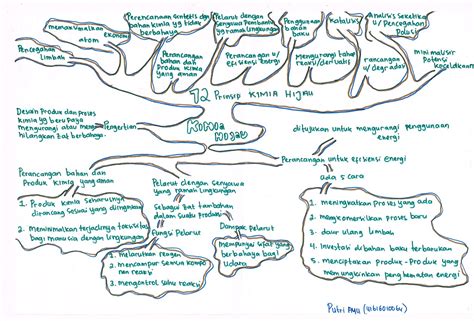 Pencegahan
limbah
memaksimalkan
atom ekonomi
Perencanaan sintesis dgn
bahan kimia yg tidak
berbahaya
Perancangan
bahan dan
Produk kimia
yang aman
Pelarut dengan
Senyawa Pembantu
yg ramah lingkungan
Perancangan u/
efisiensi energi
Penggunaan
bahan
baku
Mengurangi tahap
reaksi/derivatis
Katalis
rancangan
u/ degradasi
Analisis Seketika
u/ Pencegahan
Polusi
minimalisir
Potensi
kecelakaan
12 Prinsip KIMIA HIJAU
Desain Produk dan proses
kimia yg berupaya
mengurangi atau
menghilangkan zat berbahaya.
Pengertian
KIMIA
HIJAU
ditujukan untuk mengurangi penggunaan
energi
Perancangan untuk efisiensi energi
Ada 5 cara
Perancangan bahan dan
Produk kimia yang aman
1. Produk kimia seharusnya
dirancang sesuai yang diinginkan
2. meminimalkan terjadinya toksisitas
bagi manusia dengan lingkungan
Pelarut dengan senyawa
yang ramah lingkungan
Sebagai zat tambahan
dalam suatu Produksi
Fungsi Pelarut
1. Melarutkan reagen
2. mencampur semua kompo
nen reaksi
3. mengontrol suhu reaksi
Dampak Pelarut
Mempunyai sifat yang
berbahaya bagi
Udara
1. meningkatkan proses yang ada
2. mengkomersilkan proses baru
3. daur ulang limbah
4. Investasi dibahan baku terbarukan
5. menciptakan Produk-Produk yang
memungkinkan penghematan energi
Putri